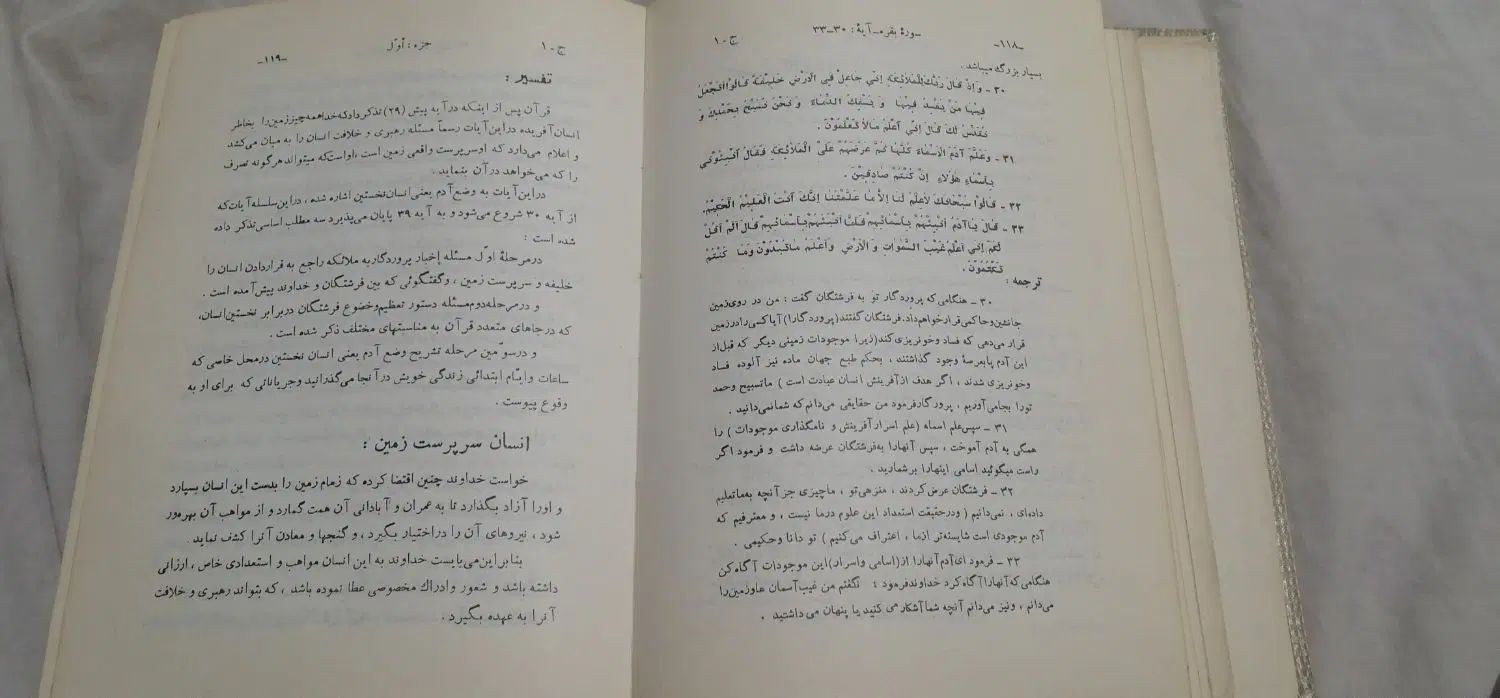 -۱۱۸- سورهٔ بقره-آیهٔ: ۳۰-۳۳ ج-۱
بسیار بزرگ میباشد.
۳۰ - وَاِذْ قالَ رَبُّكَ لِلْمَلائِكَةِ اِنّي جاعِلٌ فِي الْاَرْضِ خَليفَةً قالُوا اَتَجْعَلُ
فيها مَنْ يُفْسِدُ فيها وَ يَسْفِكُ الدِّماءَ وَ نَحْنُ نُسَبِّحُ بِحَمْدِكَ وَ
نُقَدِّسُ لَكَ قالَ اِنّي اَعْلَمُ مالا تَعْلَمُونَ.
۳۱ - وَعَلَّمَ آدَمَ الْاَسْماءَ كُلَّها ثُمَّ عَرَضَهُمْ عَلَى الْمَلائِكَةِ فَقالَ اَنْبِئُوني
بِاَسْماءِ هؤُلاءِ اِنْ كُنْتُمْ صادِقينَ.
۳۲ - قالُوا سُبْحانَكَ لاعِلْمَ لَنا اِلاّ ما عَلَّمْتَنا اِنَّكَ اَنْتَ الْعَليمُ الْحَكيمُ.
۳۳ - قالَ ياآدَمُ اَنْبِئْهُمْ بِاَسْمائِهِمْ فَلَمّا اَنْبَئَهُمْ بِاَسْمائِهِمْ قالَ اَلَمْ اَقُلْ
لَكُمْ اِنّي اَعْلَمُ غَيْبَ السَّمواتِ وَ الْاَرْضِ وَ اَعْلَمُ ماتُبْدُونَ وَ ما كُنْتُمْ
تَكْتُمُونَ.
ترجمه :
۳۰ - هنگامی که پروردگار تو به فرشتگان گفت : من در روی‌زمین
جانشین‌وحاکمی‌قرارخواهم‌داد. فرشتگان گفتند (پروردگارا) آیاکسی‌رادرزمین
قرار می‌دهی که فساد وخونریزی‌کند(زیرا موجودات زمینی دیگر که قبل‌از
این آدم پابعرصهٔ وجود گذاشتند ، بحکم طبع جهان ماده نیز آلوده فساد
وخونریزی شدند ، اگر هدف ازآفرینش انسان عبادت است ) ماتسبیح وحمد
تورا بجامی‌آوریم ، پرورگارفرمود من حقایقی می‌دانم‌که شمانمی‌دانید .
۳۱ - سپس‌علم اسماء (علم اسرارآفرینش و نامگذاری موجودات ) را
همگی به آدم آموخت ، سپس آنهارا به‌فرشتگان عرضه داشت و فرمود اگر
راست میگوئید اسامی اینهارا برشمارید .
۳۲ - فرشتگان عرض‌کردند ، منزهی‌تو ، ماچیزی جزآنچه به‌ماتعلیم
داده‌ای ، نمی‌دانیم ( ودرحقیقت استعداد این علوم درما نیست ، و معترفیم که
آدم موجودی است شایسته‌تر ازما ، اعتراف می‌کنیم ) تو دانا وحکیمی .
۳۳ - فرمود ای‌آدم‌آنهارا از(اسامی واسرار)این موجودات آگاه‌کن
هنگامی‌که‌آنهاراآگاه‌کرد خداوندفرمود : نگفتم من غیب‌آسمان هاوزمین‌را
می‌دانم ، ونیز می‌دانم آنچه شماآشکارمی کنید یا پنهان می داشتید .
ج-۱ جزء: اوّل -۱۱۹-
تفسیر :
قرآن پس از اینکه درآیه پیش (۲۹) تذکردادکه‌خداهمه‌چیززمین‌را بخاطر
انسان‌آفریده دراین‌آیات رسماً مسئله رهبری و خلافت انسان را به میان می‌کشد
و اعلام می‌دارد که اوسرپرست واقعی زمین است ،اواست‌که میتواندهرگونه تصرف
را که می‌خواهد درآن بنماید..
دراین‌آیات به وضع‌آدم یعنی‌انسان‌نخستین اشاره شده ، دراین‌سلسله‌آیات‌که
از آیه ۳۰ شروع می‌شود و به آیه ۳۹ پایان می‌پذیرد سه مطلب اساسی‌تذکر داده
شده است :
درمرحلهٔ اوّل مسئله إخبار پروردگاربه ملائکه راجع به قراردادن انسان را
خلیفه و سرپرست زمین ، وگفتگوئی که بین فرشتگان و خداوند پیش‌آمده است .
و درمرحله‌دوم‌مسئله دستور تعظیم‌وخضوع فرشتگان دربرابر نخستین‌انسان،
که درجاهای متعدد قرآن به مناسبتهای مختلف ذکر شده است .
و درسوّمین مرحله تشریح وضع آدم یعنی انسان نخستین درمحل خاصی که
ساعات وایـّام ابتدائی زندگی خویش درآنجا می‌گذرانید وجریاناتی که برای او به
وقوع پیوست .
انسان سرپرست زمین :
خواست خداوند چنین اقتضا کرده که زمام زمین را بدست این انسان بسپارد
و اورا آزاد بگذارد تا به عمران و آبادانی آن همت گمارد و از مواهب آن بهره‌ور
شود ، نیروهای آن را دراختیار بگیرد ، و گنجها و معادن آنرا کشف نماید .
بنابراین‌می‌بایست خداوند به این انسان مواهب و استعدادی خاص ، ارزانی
داشته باشد و شعور وادراك مخصوصی عطا نموده باشد ، که بتواند رهبری و خلافت
آنرا به عهده بگیرد .